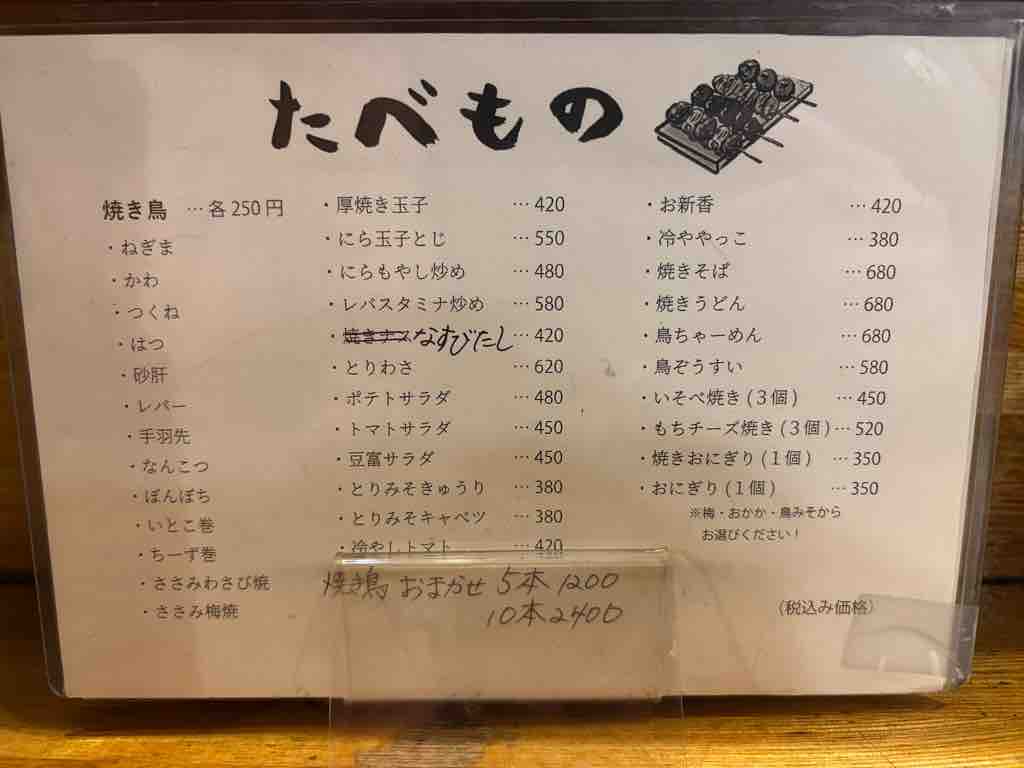 たべもの
焼き鳥 …各250円
・ねぎま
・かわ
・つくね
・はつ
・砂肝
・レバー
・手羽先
・なんこつ
・ぼんぼち
・いとこ巻
・ちーず巻
・ささみわさび焼
・ささみ梅焼
・厚焼き玉子 …420
・にら玉子とじ …550
・にらもやし炒め …480
・レバスタミナ炒め …580
・焼きナス なすびたし …420
・とりわさ …620
・ポテトサラダ …480
・トマトサラダ …450
・豆富サラダ …450
・とりみそきゅうり …380
・とりみそキャベツ …380
・冷やしトマト …420
焼き鳥 おまかせ 5本1200
10本2400
・お新香 …420
・冷ややっこ …380
・焼きそば …680
・焼きうどん …680
・鳥ちゃーめん …680
・鳥ぞうすい …580
・いそべ焼き(3個) …450
・もちチーズ焼き(3個)…520
・焼きおにぎり(1個) …350
・おにぎり(1個) …350
※梅・おかか・鳥みそから
お選びください！
（税込み価格）